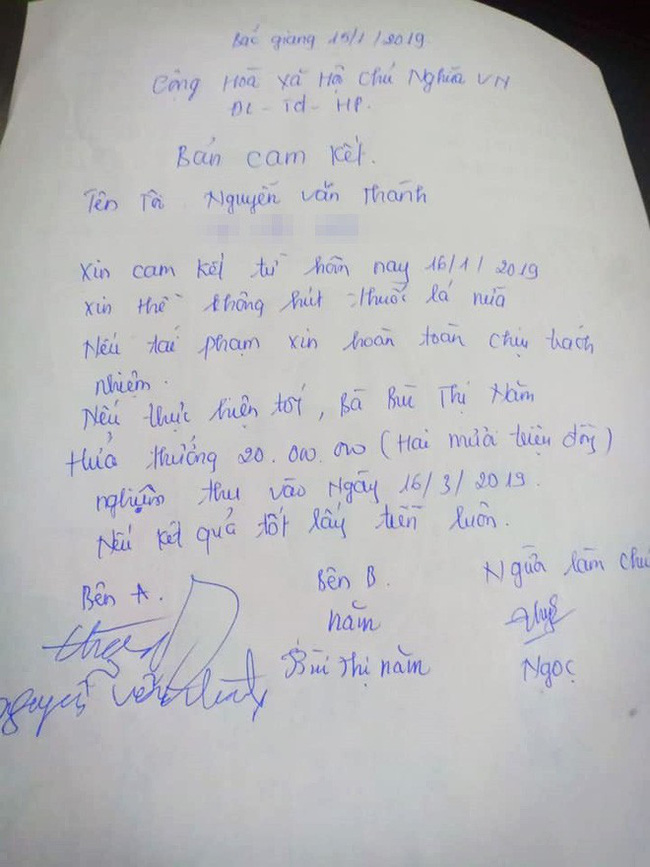 Bắc giang 15/1/2019.
Cộng Hoà Xã Hội Chủ Nghĩa VN
ĐL - Td - HP.
Bản cam kết.
Tên Tôi Nguyễn Văn Thành
Xin cam kết từ hôm nay 16/1/2019
xin thề không hút thuốc lá nữa
Nếu tái phạm xin hoàn toàn chịu trách
nhiệm.
Nếu thực hiện tốt, Bà Bùi Thị Năm
Hứa thưởng 20.000.000 (Hai mươi triệu đồng)
nghiệm thu vào Ngày 16/3/2019.
Nếu kết quả tốt lấy tiền luôn.
Bên A. Bên B. Người làm chứ
năm
Nguyễn Văn Thành Bùi Thị năm Ngọc